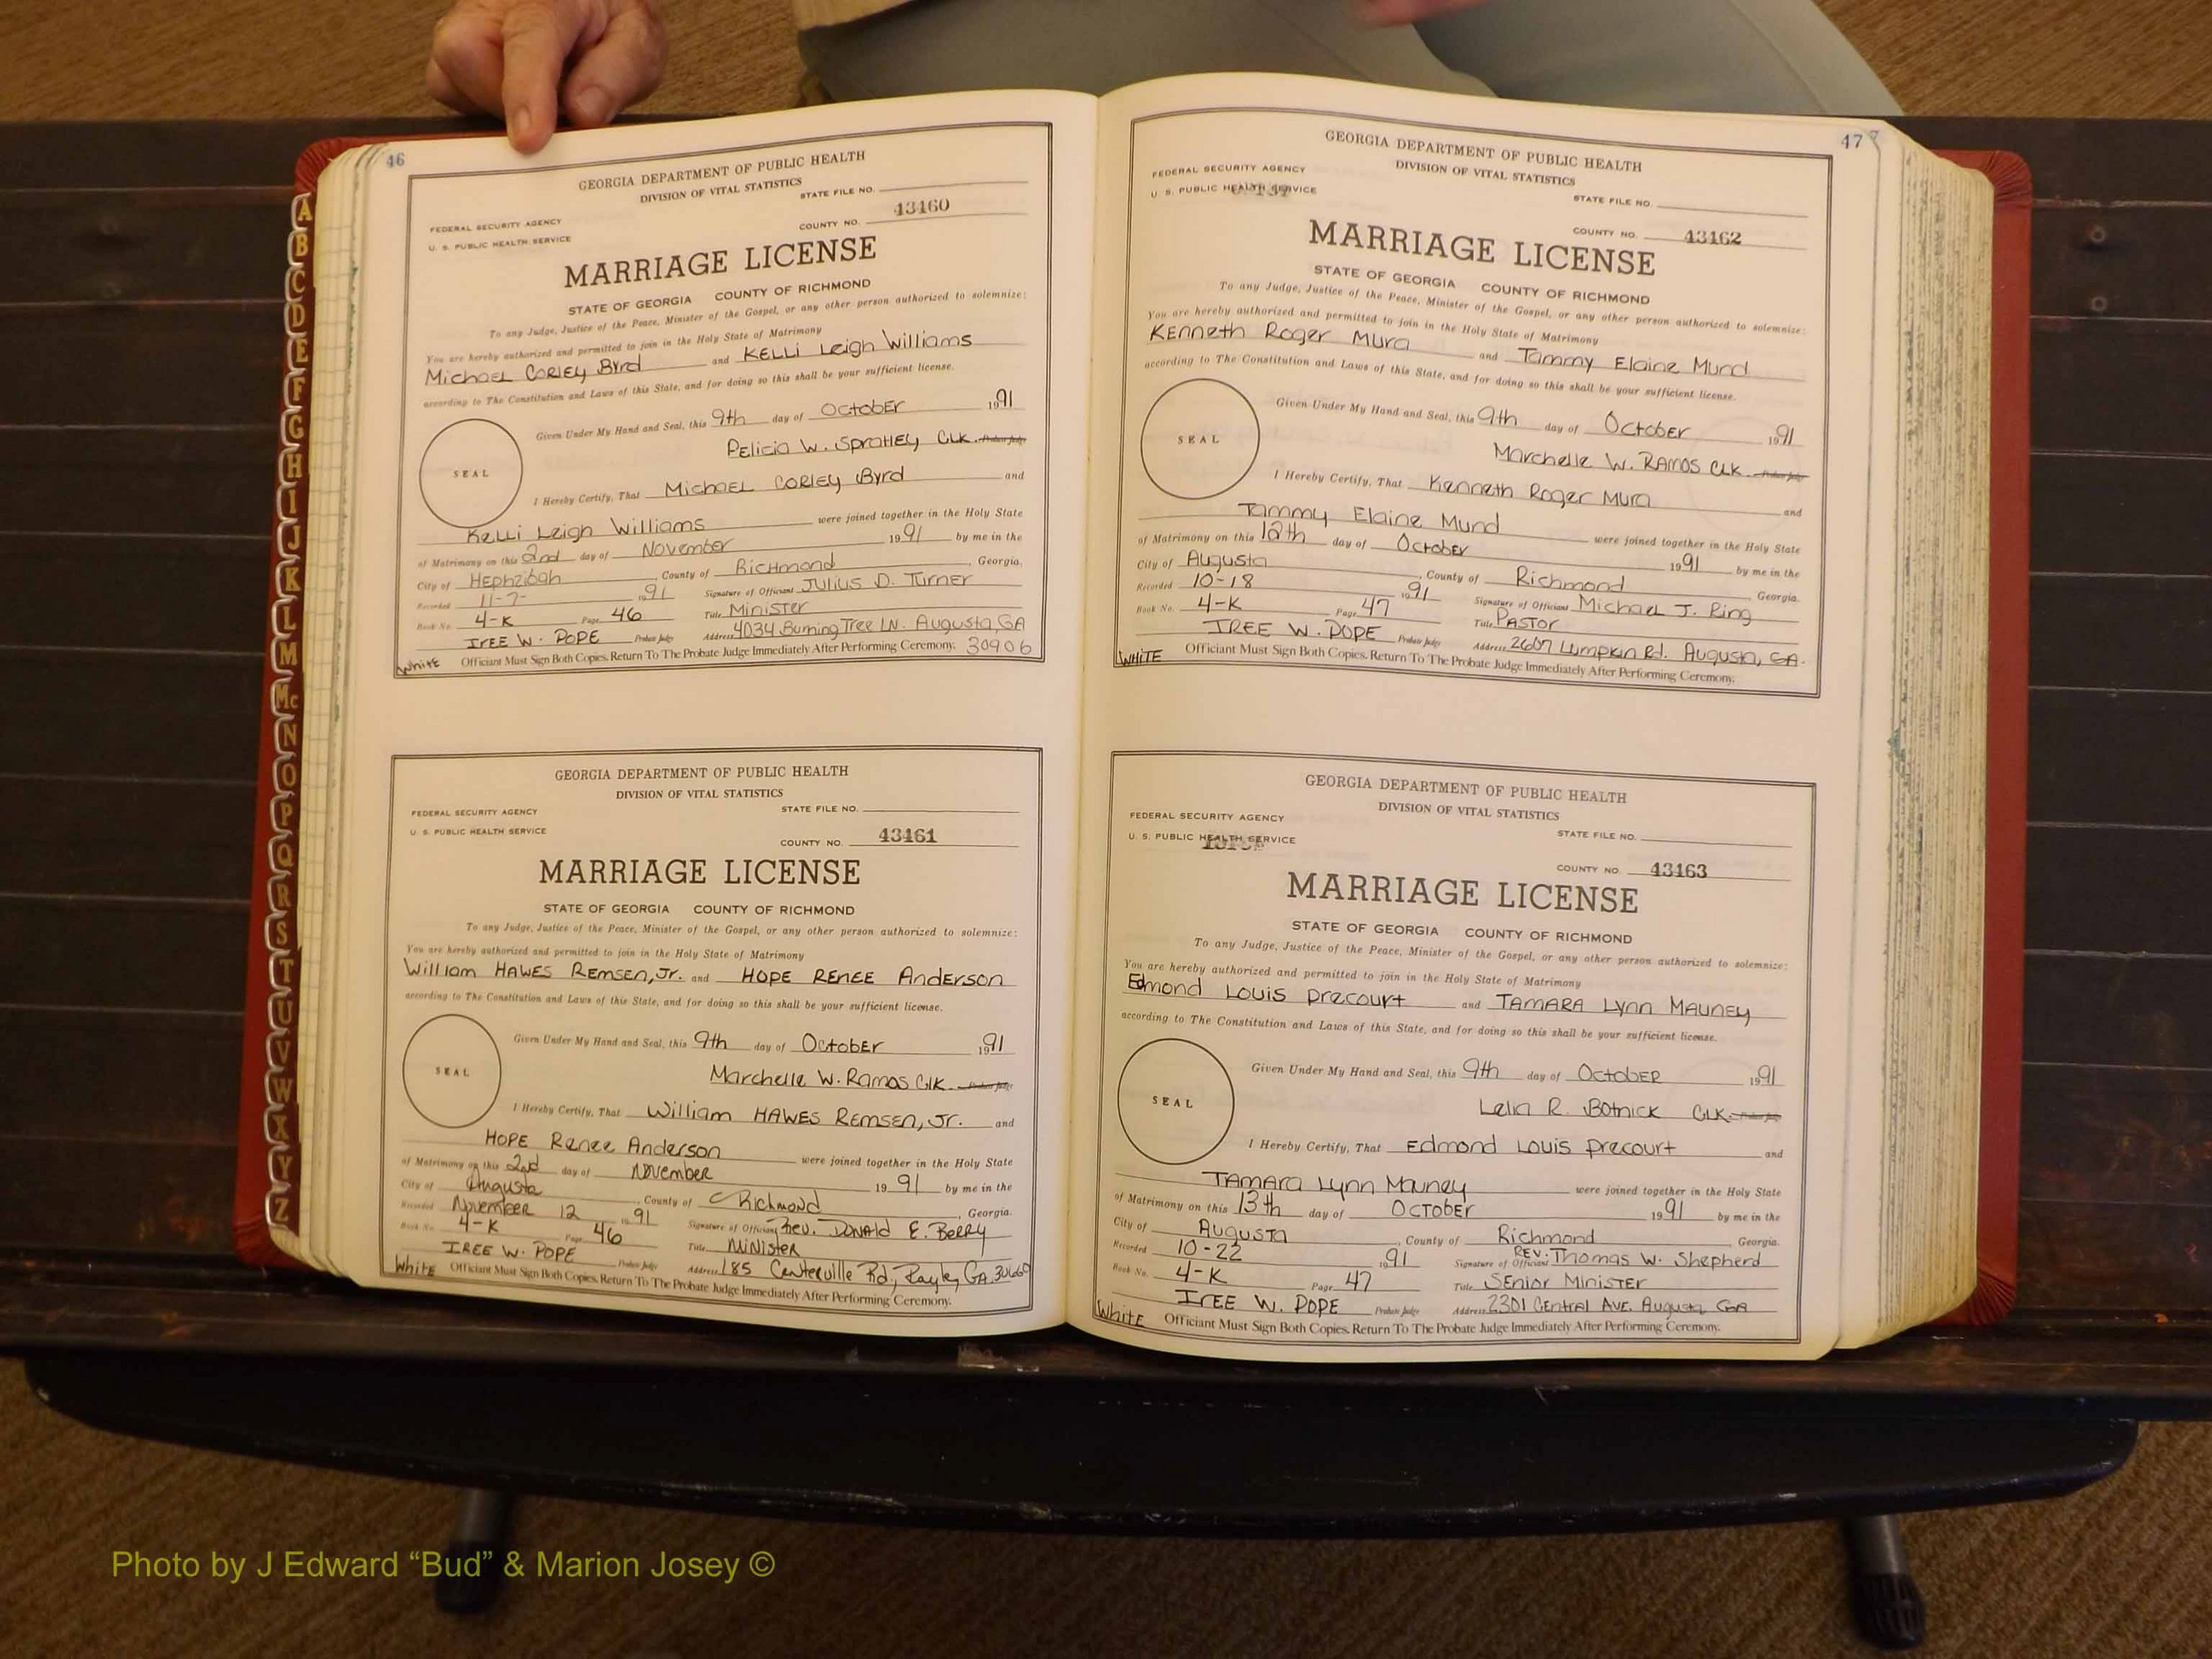 46
GEORGIA DEPARTMENT OF PUBLIC HEALTH
DIVISION OF VITAL STATISTICS
STATE FILE NO.
FEDERAL SECURITY AGENCY
U. S. PUBLIC HEALTH SERVICE
COUNTY NO. 43460
MARRIAGE LICENSE
STATE OF GEORGIA COUNTY OF RICHMOND
To any Judge, Justice of the Peace, Minister of the Gospel, or any other person authorized to solemnize:
You are hereby authorized and permitted to join in the Holy State of Matrimony
Michael Corley Byrd and Kelli Leigh Williams
according to The Constitution and Laws of this State, and for doing so this shall be your sufficient license.
Given Under My Hand and Seal, this 9th day of October 1991
SEAL
Felicia W. Spratley Clk. Probate Judge
I Hereby Certify, That Michael Corley Byrd and
Kelli Leigh Williams were joined together in the Holy State
of Matrimony on this 2nd day of November 1991 by me in the
City of Hephzibah, County of Richmond, Georgia.
Recorded 11-7- 1991 Signature of Officiant Julius D. Turner
Book No. 4-K Page 46 Title Minister
IREE W. POPE Probate Judge Address 4034 Burning Tree LN. Augusta, GA
White Officiant Must Sign Both Copies. Return To The Probate Judge Immediately After Performing Ceremony. 30906
GEORGIA DEPARTMENT OF PUBLIC HEALTH
DIVISION OF VITAL STATISTICS
FEDERAL SECURITY AGENCY STATE FILE NO.
U. S. PUBLIC HEALTH SERVICE
COUNTY NO. 43461
MARRIAGE LICENSE
STATE OF GEORGIA COUNTY OF RICHMOND
To any Judge, Justice of the Peace, Minister of the Gospel, or any other person authorized to solemnize:
You are hereby authorized and permitted to join in the Holy State of Matrimony
William HAWES REMSEN, Jr. and HOPE RENEE Anderson
according to The Constitution and Laws of this State, and for doing so this shall be your sufficient license.
Given Under My Hand and Seal, this 9th day of October 1991
SEAL
Marchelle W. Ramos Clk. Probate Judge
I Hereby Certify, That William HAWES REMSEN, Jr. and
HOPE Renee Anderson were joined together in the Holy State
of Matrimony on this 2nd day of November 1991 by me in the
City of Augusta, County of Richmond, Georgia.
Recorded November 12 1991 Signature of Officiant Rev. Donald E. Berry
Book No. 4-K Page 46 Title Minister
IREE W. POPE Probate Judge Address 185 Centerville Rd, Rayle, GA. 30660
White Officiant Must Sign Both Copies. Return To The Probate Judge Immediately After Performing Ceremony.
47
GEORGIA DEPARTMENT OF PUBLIC HEALTH
DIVISION OF VITAL STATISTICS
FEDERAL SECURITY AGENCY
U. S. PUBLIC HEALTH SERVICE
STATE FILE NO.
COUNTY NO. 43462
MARRIAGE LICENSE
STATE OF GEORGIA COUNTY OF RICHMOND
To any Judge, Justice of the Peace, Minister of the Gospel, or any other person authorized to solemnize:
You are hereby authorized and permitted to join in the Holy State of Matrimony
Kenneth Roger Mura and Tammy Elaine Mund
according to The Constitution and Laws of this State, and for doing so this shall be your sufficient license.
Given Under My Hand and Seal, this 9th day of October 1991
SEAL
Marchelle W. Ramos Clk. Probate Judge
I Hereby Certify, That Kenneth Roger Mura and
Tammy Elaine Mund were joined together in the Holy State
of Matrimony on this 12th day of October 1991 by me in the
City of Augusta, County of Richmond Georgia.
Recorded 10-18 1991 Signature of Officiant Michael J. Ring
Book No. 4-K Page 47 Title Pastor
IREE W. POPE Probate Judge Address 2607 Lumpkin Rd. Augusta, GA.
WHITE Officiant Must Sign Both Copies. Return To The Probate Judge Immediately After Performing Ceremony.
GEORGIA DEPARTMENT OF PUBLIC HEALTH
DIVISION OF VITAL STATISTICS
FEDERAL SECURITY AGENCY
U. S. PUBLIC HEALTH SERVICE
STATE FILE NO.
COUNTY NO. 43463
MARRIAGE LICENSE
STATE OF GEORGIA COUNTY OF RICHMOND
To any Judge, Justice of the Peace, Minister of the Gospel, or any other person authorized to solemnize:
You are hereby authorized and permitted to join in the Holy State of Matrimony
Edmond Louis Precourt and TAMARA Lynn MAUNEY
according to The Constitution and Laws of this State, and for doing so this shall be your sufficient license.
Given Under My Hand and Seal, this 9th day of October 1991
SEAL
Lelia R. Botnick Clk. Probate Judge
I Hereby Certify, That Edmond Louis Precourt and
TAMARA Lynn Mauney were joined together in the Holy State
of Matrimony on this 13th day of October 1991 by me in the
City of Augusta, County of Richmond Georgia.
Recorded 10-22 1991 Signature of Officiant REV. Thomas W. Shepherd
Book No. 4-K Page 47 Title Senior Minister
IREE W. POPE Probate Judge Address 2301 Central Ave. Augusta, GA
White Officiant Must Sign Both Copies. Return To The Probate Judge Immediately After Performing Ceremony.
A
B
C
D
E
F
G
H
I
J
K
L
M
Mc
N
O
P
Q
R
S
T
U
V
W
X
Y
Z
Photo by J Edward “Bud” & Marion Josey ©